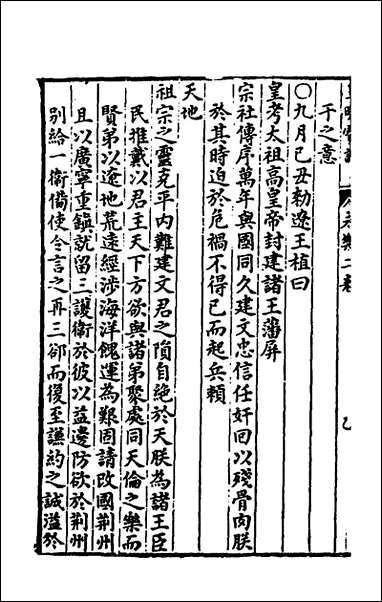 干之意
〇九月己丑勑遼王植曰
皇考太祖高皇帝封建諸王藩屏
宗社傳序萬年與國同久建文忠信任奸囬以殘骨肉朕
於其時迫於危禍不得已而起兵賴
天地
祖宗之靈克平內難建文君之隕自絕於天朕為諸王臣
民推戴以君主天下方欲與諸弟聚處同天倫之樂而
賢弟以遼地荒遠經涉海洋餽運為艱固請改國荆州
且以廣寧重鎮就留三護衛於彼以益邊防欲於荆州
別給一衛備使令言之再三卻而復至謙約之誠溢於